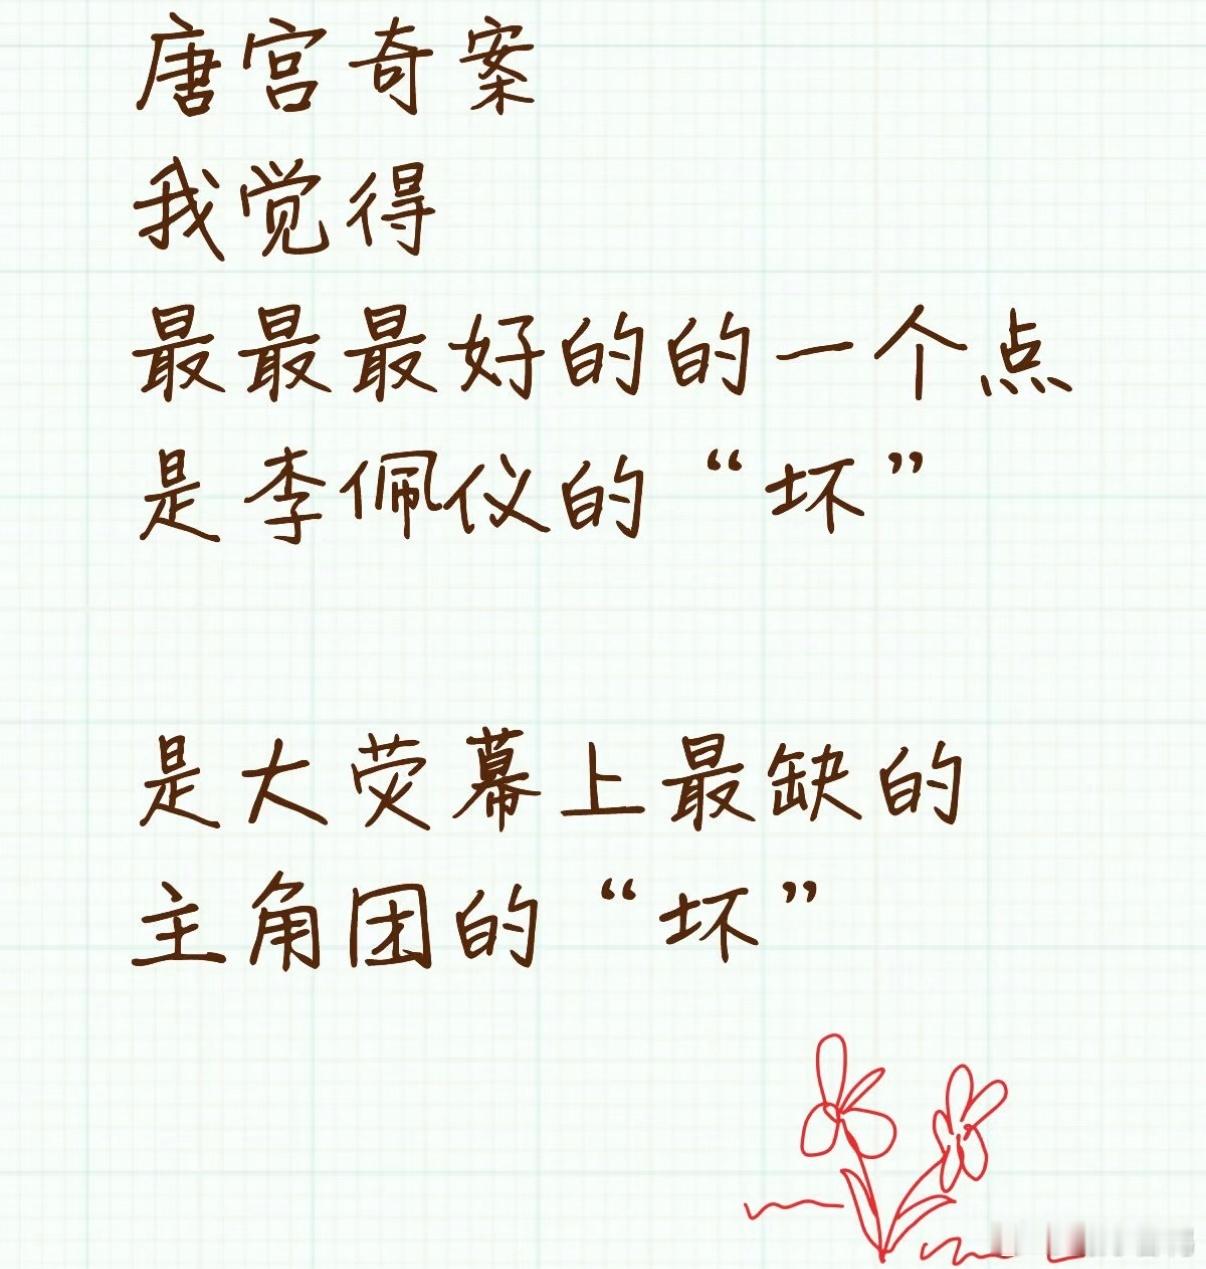 唐宫奇案
我觉得
最最最好的的一个点
是李佩仪的“坏”
是大荧幕上最缺的
主角团的“坏”